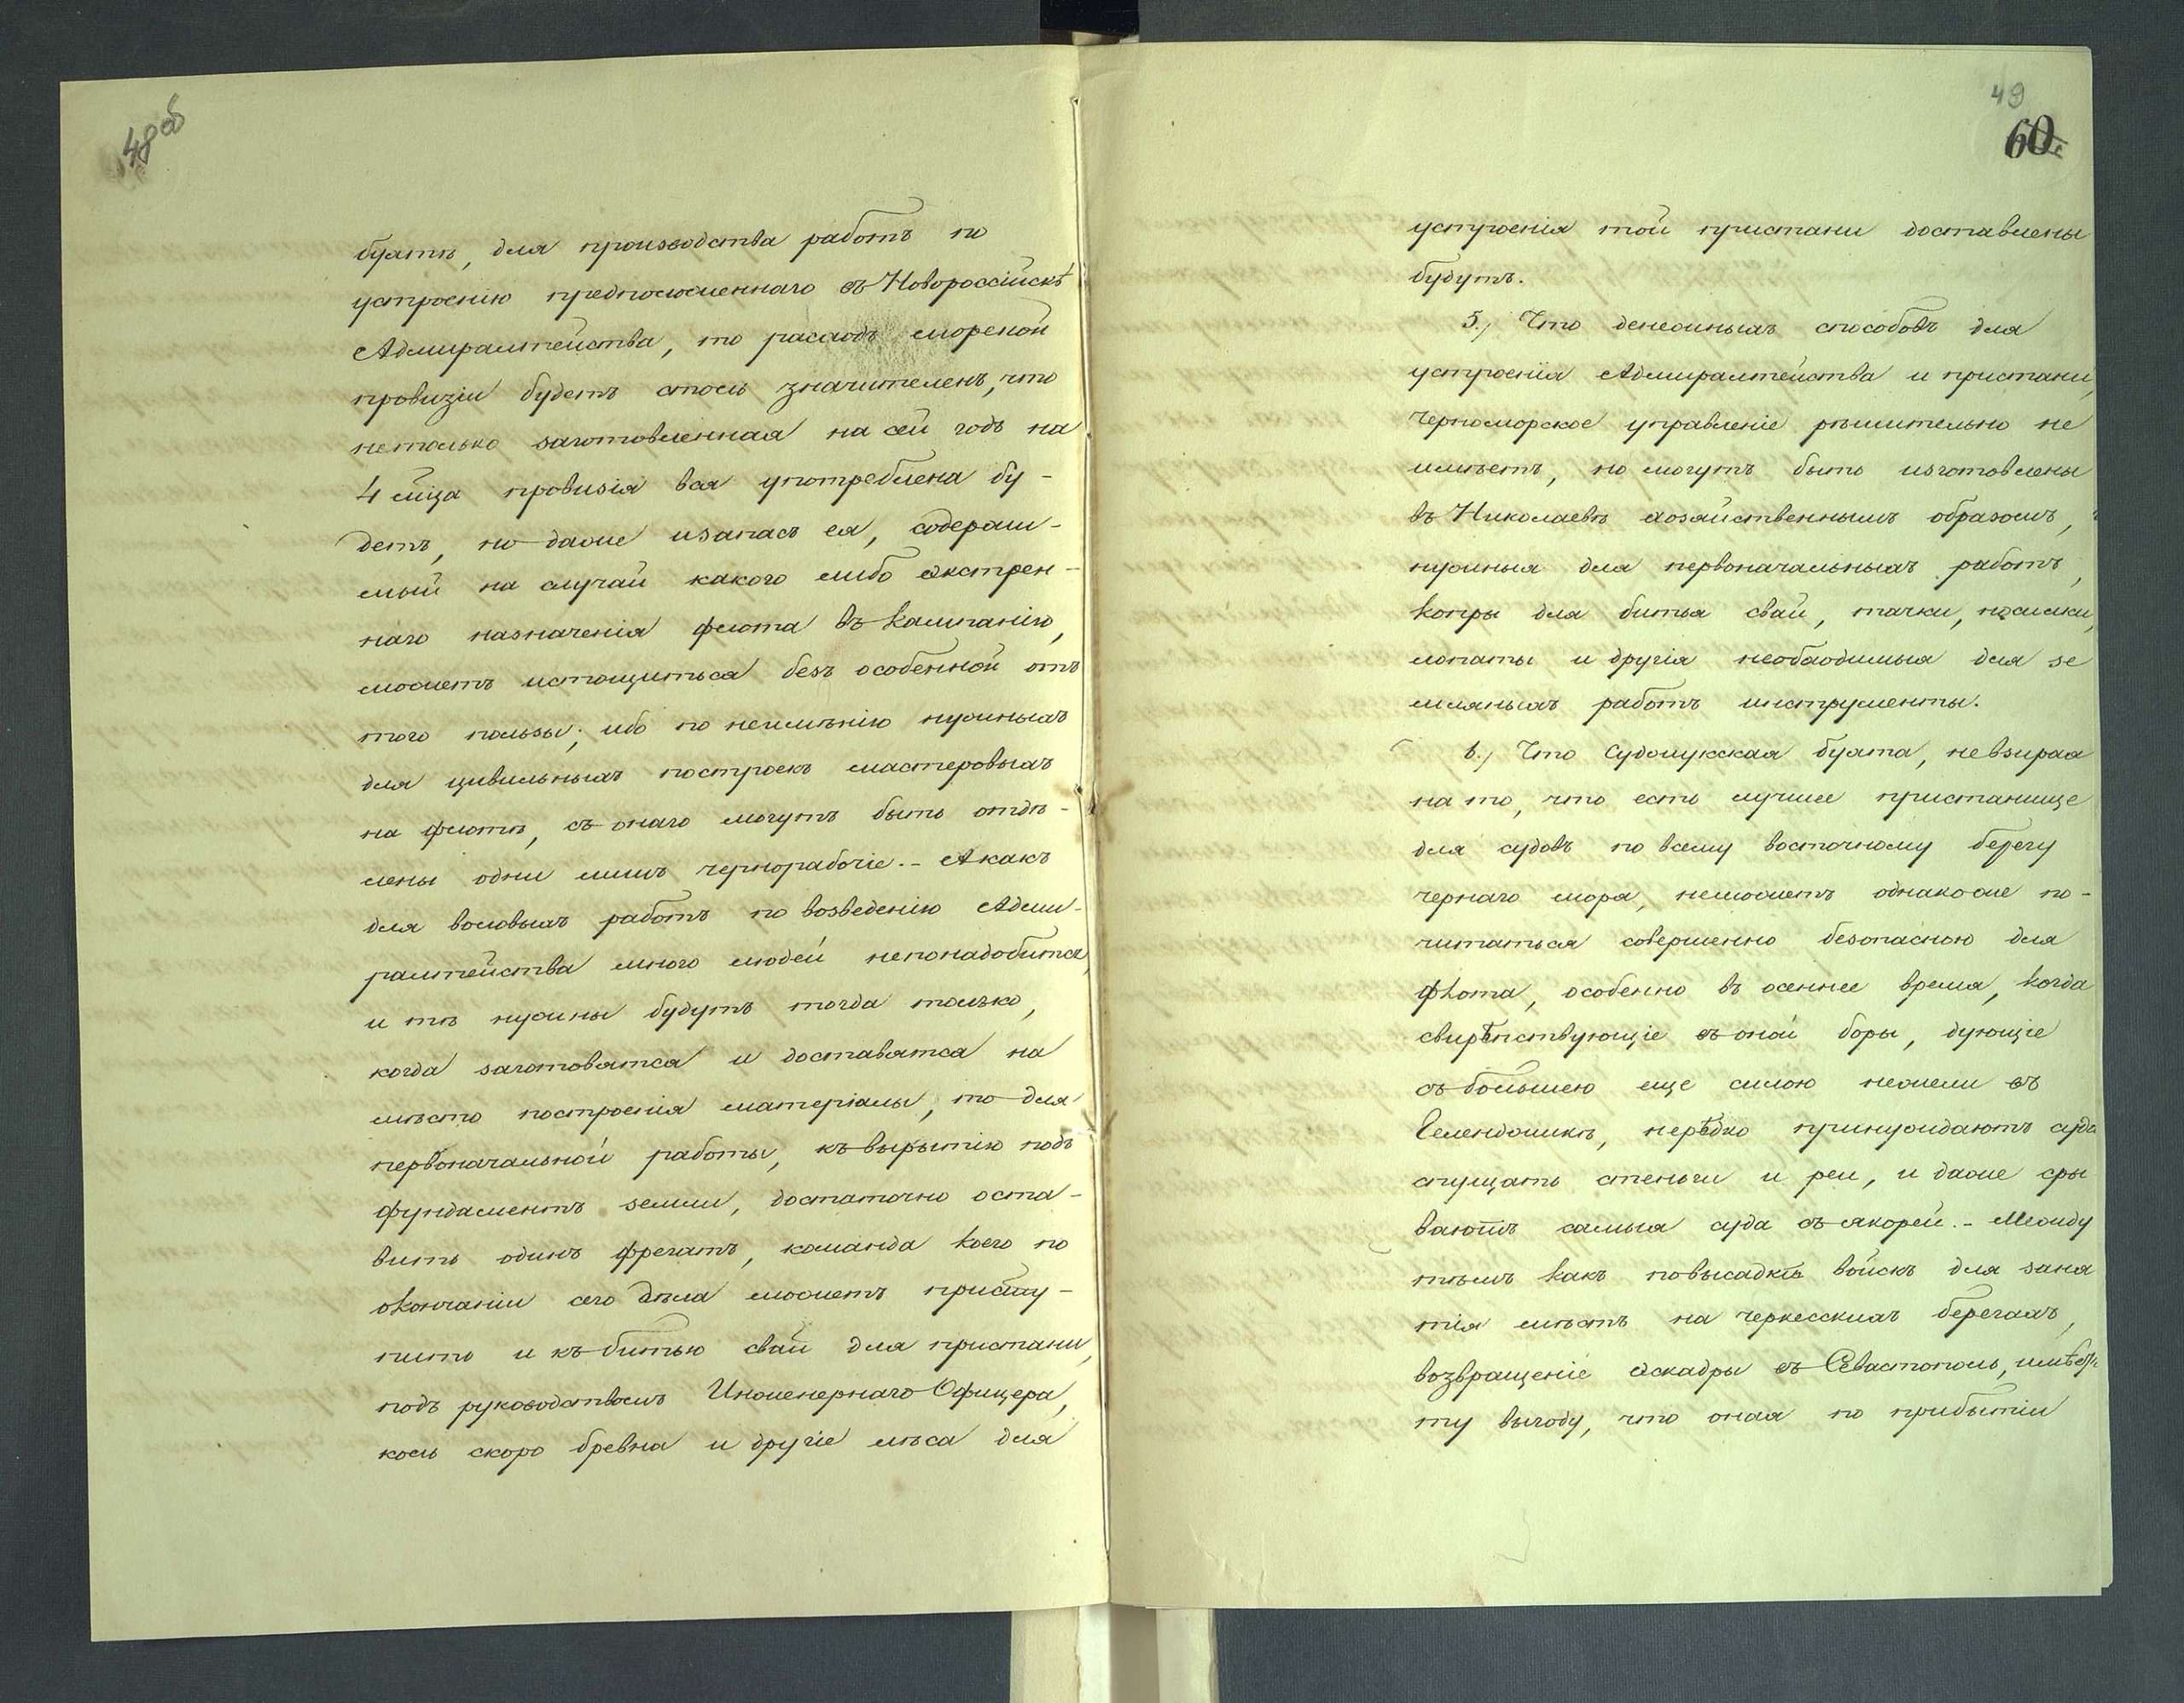 48 об
бухтѣ, для производства работъ по
устроенію предположеннаго въ Новороссійскѣ
Адмиралтейства, то расходъ морской
провизіи будетъ столь значителенъ, что
нетолько заготовленная на сей годъ на
4 мѣца провизія вся употреблена бу-
детъ, но даже изапасъ ея, содержи-
мый на случай какого либо экстрен-
наго назначенія флота въ кампанію,
можетъ истощиться безъ особенной отъ
того пользы; ибо по неимѣнію нужныхъ
для цивильныхъ построекъ мастеровыхъ
на флотѣ, съ онаго могутъ быть отдѣ-
лены одни лишь чернорабочіе. - А какъ
для таковыхъ работъ по возведенію Адми-
ралтейства много людей непонадобится,
и тѣ нужны будутъ тогда только,
когда заготовятся и доставятся на
мѣсто построенія матеріалы, то для
первоначальной работы, къ вырытію подъ
фундаментъ земли, достаточно оста-
вить одинъ фрегатъ, команда коего по
окончаніи сего дѣла можетъ присту-
пить и къ битью свай для пристани,
подъ руководствомъ Инженернаго Офицера,
коль скоро бревна и другіе лѣса для
49
60
устроенія той пристани доставлены
будутъ.
5., Что денежныхъ способовъ для
устроенія Адмиралтейства и пристани,
черноморское управленіе рѣшительно не
имѣетъ, но могутъ быть изготовлены
въ Николаевѣ хозяйственнымъ образомъ,
нужныя для первоначальныхъ работъ,
копры для битья свай, тачки, носилки,
лопаты и другія необходимыя для зе
мляныхъ работъ инструменты.
6., Что Суджукская бухта, невзирая
на то, что есть лучшее пристанище
для судовъ по всему восточному берегу
чернаго моря, неможетъ однакоже по-
читаться совершенно безопасною для
флота, особенно въ осеннее время, когда
свирѣпствующіе въ оной боры, дующіе
съ большею еще силою нежели въ
Геленджикѣ, нерѣдко принуждаютъ суда
спущать стеньги и реи, и даже сры
ваютъ самыя суда съ якорей. - Между
тѣмъ какъ повысадкѣ войскъ для заня
тія мѣстъ на черкесскихъ берегахъ,
возвращеніе эскадры въ Севастополь, имѣетъ
ту выгоду, что оная по прибытіи